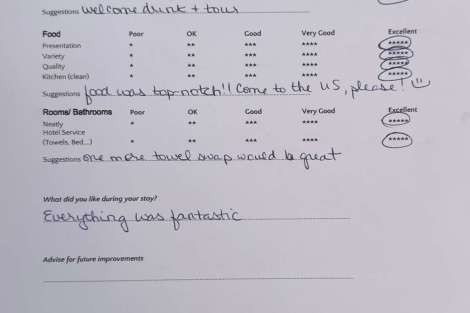 Suggestions welcome drink + tour
Food Poor OK Good Very Good Excellent
Presentation * ** *** **** *****
Variety * ** *** **** *****
Quality * ** *** **** *****
Kitchen (clean) * ** *** **** *****
Suggestions food was top-notch!! Come to the US, please!
Rooms/ Bathrooms Poor OK Good Very Good Excellent
Neatly * ** *** **** *****
Hotel Service
(Towels, Bed...) * ** *** **** *****
Suggestions one more towel swap would be great
What did you like during your stay?
Everything was fantastic
Advise for future improvements